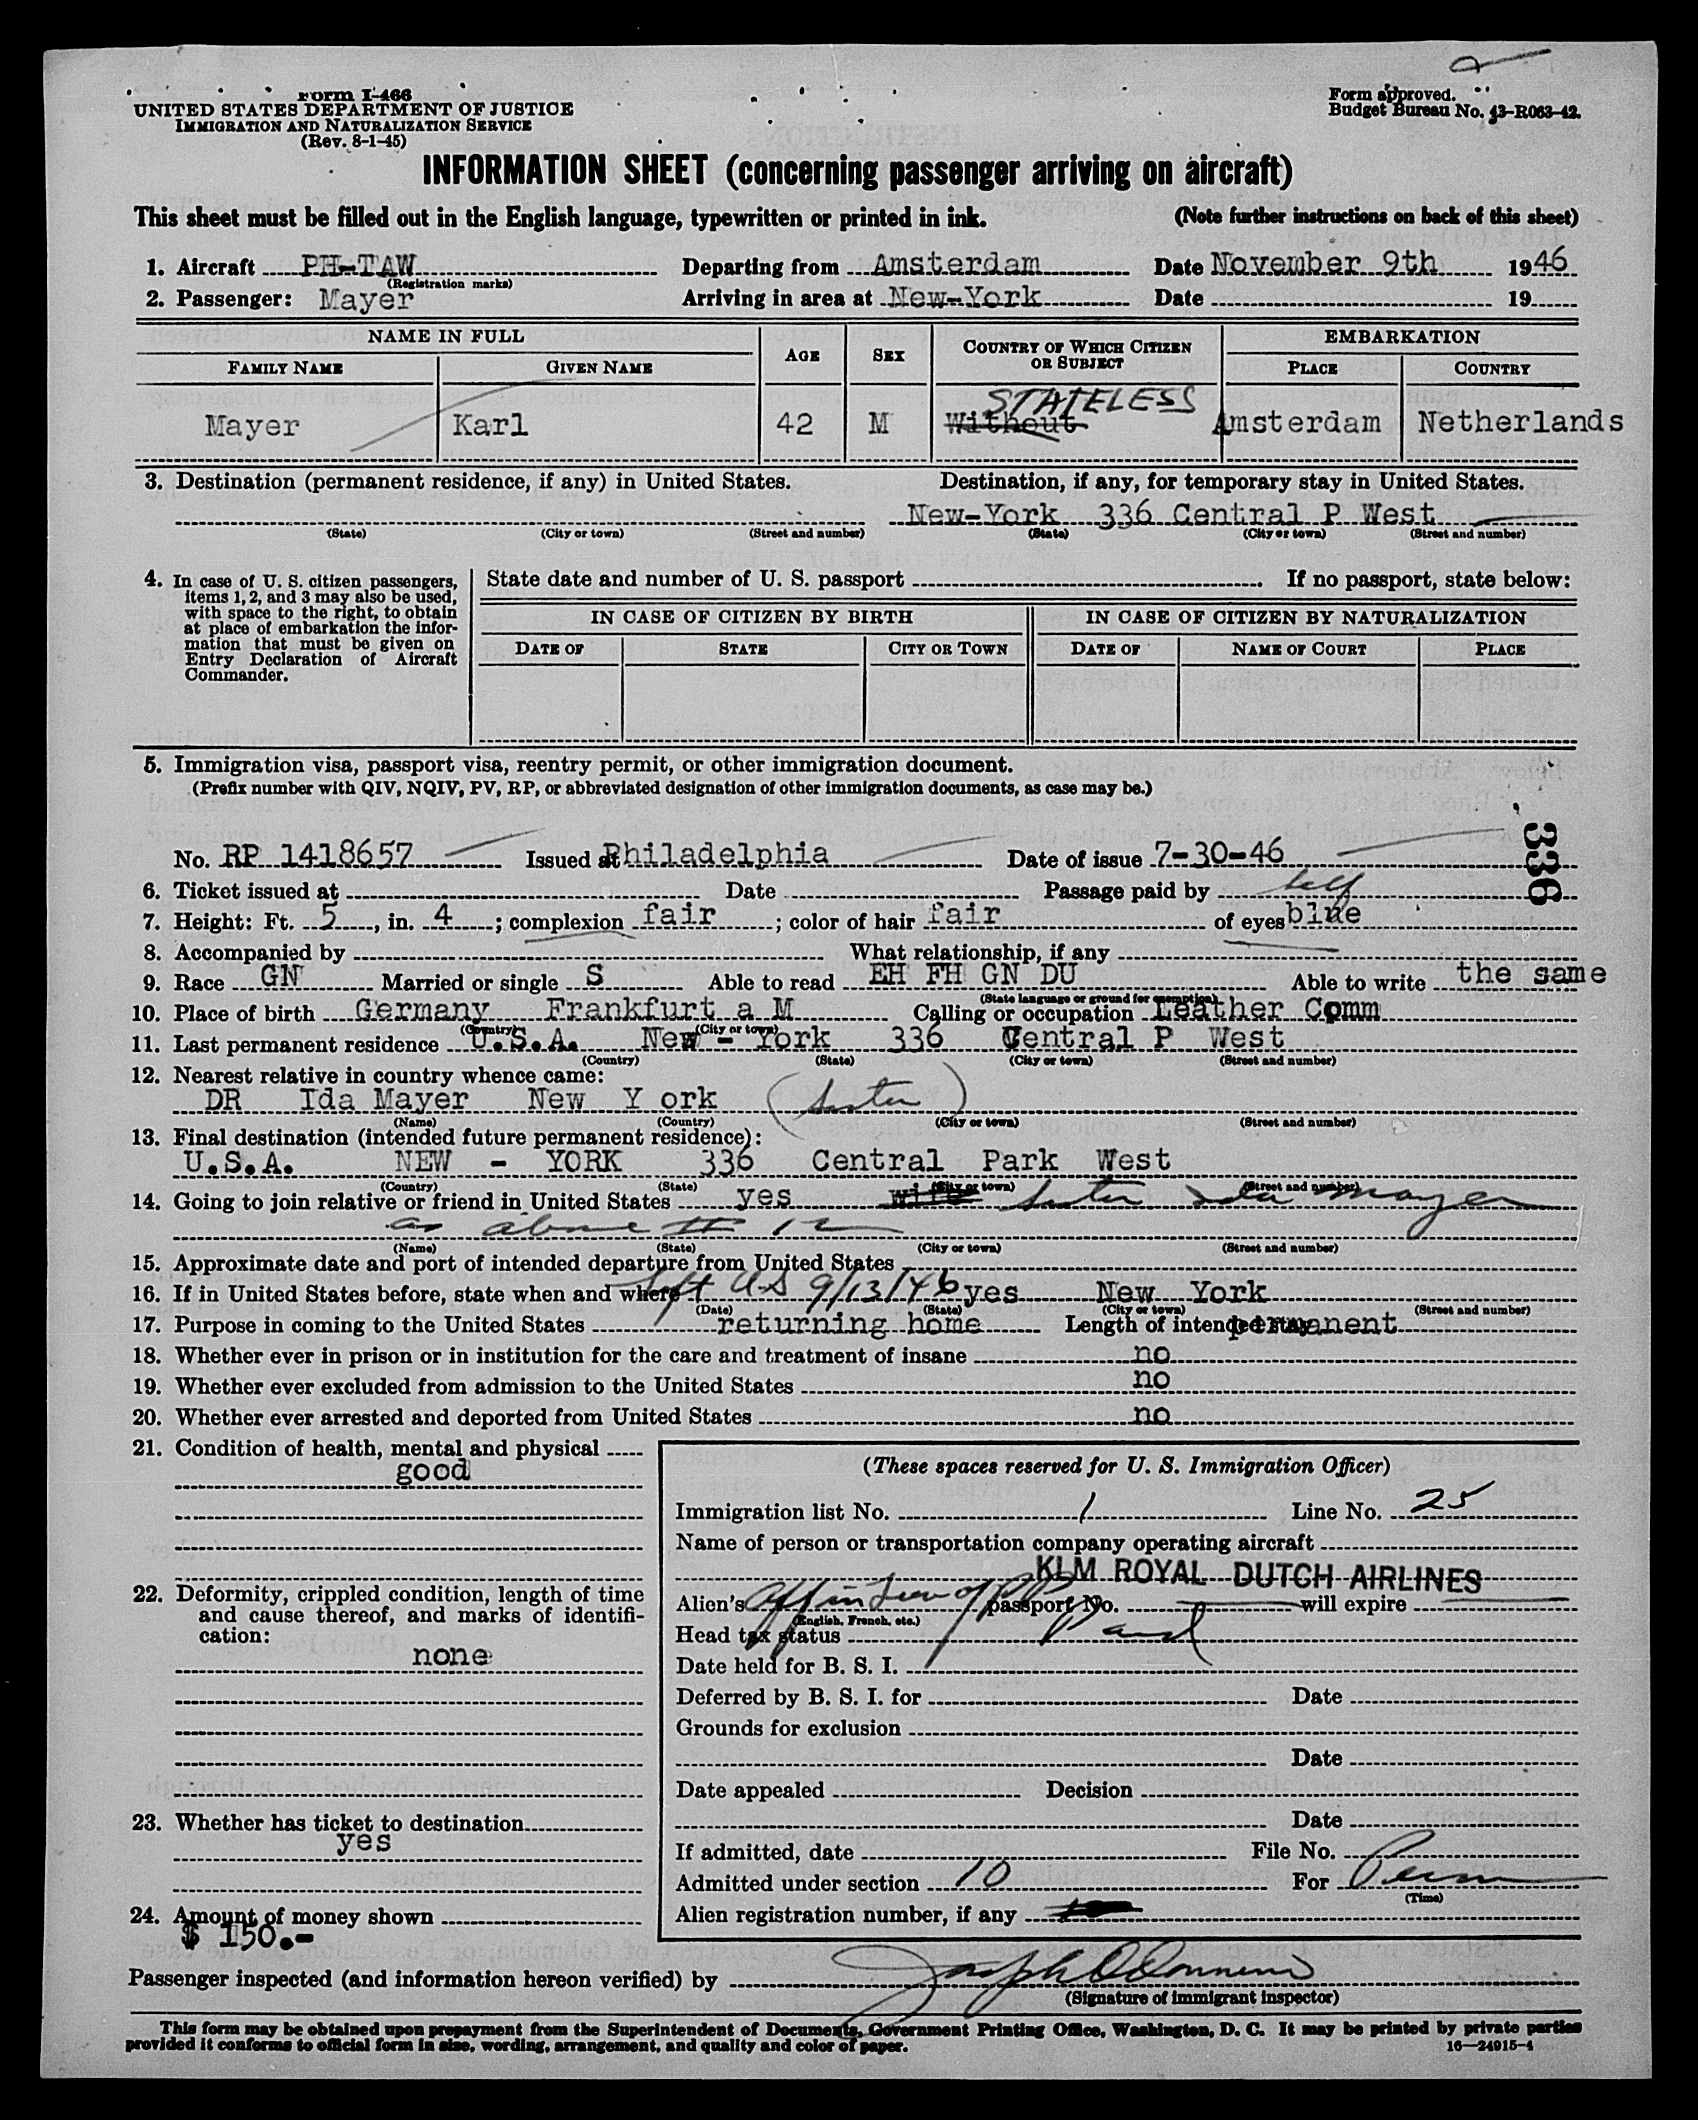 Form I-466
UNITED STATES DEPARTMENT OF JUSTICE
IMMIGRATION AND NATURALIZATION SERVICE
(Rev. 8-1-45)
Form approved.
Budget Bureau No. 43-R063-42.
INFORMATION SHEET (concerning passenger arriving on aircraft)
This sheet must be filled out in the English language, typewritten or printed in ink. (Note further instructions on back of this sheet)
1. Aircraft PH-TAW Departing from Amsterdam Date November 9th 1946
(Registration marks)
2. Passenger: Mayer Arriving in area at New-York Date 19
NAME IN FULL AGE SEX COUNTRY OF WHICH CITIZEN OR SUBJECT EMBARKATION
FAMILY NAME GIVEN NAME PLACE COUNTRY
STATELESS
Mayer Karl 42 M Without Amsterdam Netherlands
3. Destination (permanent residence, if any) in United States. Destination, if any, for temporary stay in United States.
New-York 336 Central P West
(State) (City or town) (Street and number) (State) (City or town) (Street and number)
4. In case of U. S. citizen passengers, items 1, 2, and 3 may also be used, with space to the right, to obtain at place of embarkation the information that must be given on Entry Declaration of Aircraft Commander.
State date and number of U. S. passport If no passport, state below:
IN CASE OF CITIZEN BY BIRTH IN CASE OF CITIZEN BY NATURALIZATION
DATE OF STATE CITY OR TOWN DATE OF NAME OF COURT PLACE
5. Immigration visa, passport visa, reentry permit, or other immigration document.
(Prefix number with QIV, NQIV, PV, RP, or abbreviated designation of other immigration documents, as case may be.)
336
No. RP 1418657 Issued at Philadelphia Date of issue 7-30-46
6. Ticket issued at Date Passage paid by self
7. Height: Ft. 5, in. 4; complexion fair; color of hair fair of eyes blue
8. Accompanied by What relationship, if any
9. Race GN Married or single S Able to read EH FH GN DU Able to write the same
(State language or ground for exemption)
10. Place of birth Germany Frankfurt a M Calling or occupation Leather Comm
(Country) (City or town)
11. Last permanent residence U.S.A. New - York 336 Central P West
(Country) (State) (City or town) (Street and number)
12. Nearest relative in country whence came:
DR Ida Mayer New Y ork (sister)
(Name) (Country) (City or town) (Street and number)
13. Final destination (intended future permanent residence):
U.S.A. NEW - YORK 336 Central Park West
(Country) (State) (City or town) (Street and number)
14. Going to join relative or friend in United States yes wife Sister Ida Mayer
as above # 12
(Name) (State) (City or town) (Street and number)
15. Approximate date and port of intended departure from United States
16. If in United States before, state when and where left US 9/13/46 yes New York
(Date) (State) (City or town) (Street and number)
17. Purpose in coming to the United States returning home Length of intended stay permanent
18. Whether ever in prison or in institution for the care and treatment of insane no
19. Whether ever excluded from admission to the United States no
20. Whether ever arrested and deported from United States no
21. Condition of health, mental and physical
good
22. Deformity, crippled condition, length of time and cause thereof, and marks of identification:
none
23. Whether has ticket to destination
yes
24. Amount of money shown
$ 150.-
(These spaces reserved for U. S. Immigration Officer)
Immigration list No. 1 Line No. 25
Name of person or transportation company operating aircraft
KLM ROYAL DUTCH AIRLINES
Alien's Aff in lieu of PP passport No. will expire
(English, French, etc.)
Head tax status Paid
Date held for B. S. I.
Deferred by B. S. I. for Date
Grounds for exclusion
Date
Date appealed Decision
Date
If admitted, date File No.
Admitted under section 10 For Perm
(Time)
Alien registration number, if any
Passenger inspected (and information hereon verified) by Joseph
(Signature of immigrant inspector)
This form may be obtained upon prepayment from the Superintendent of Documents, Government Printing Office, Washington, D. C. It may be printed by private parties
provided it conforms to official form in size, wording, arrangement, and quality and color of paper.
16—24915-4